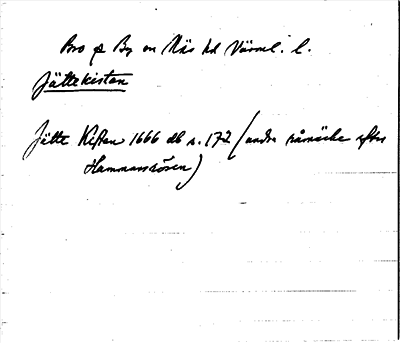 Bro s By en Näs hd Värml. l.
Jättekistan
Jätte Kisten 1666 db s. 172 (andra råmärke efter
Hammarsrösen)